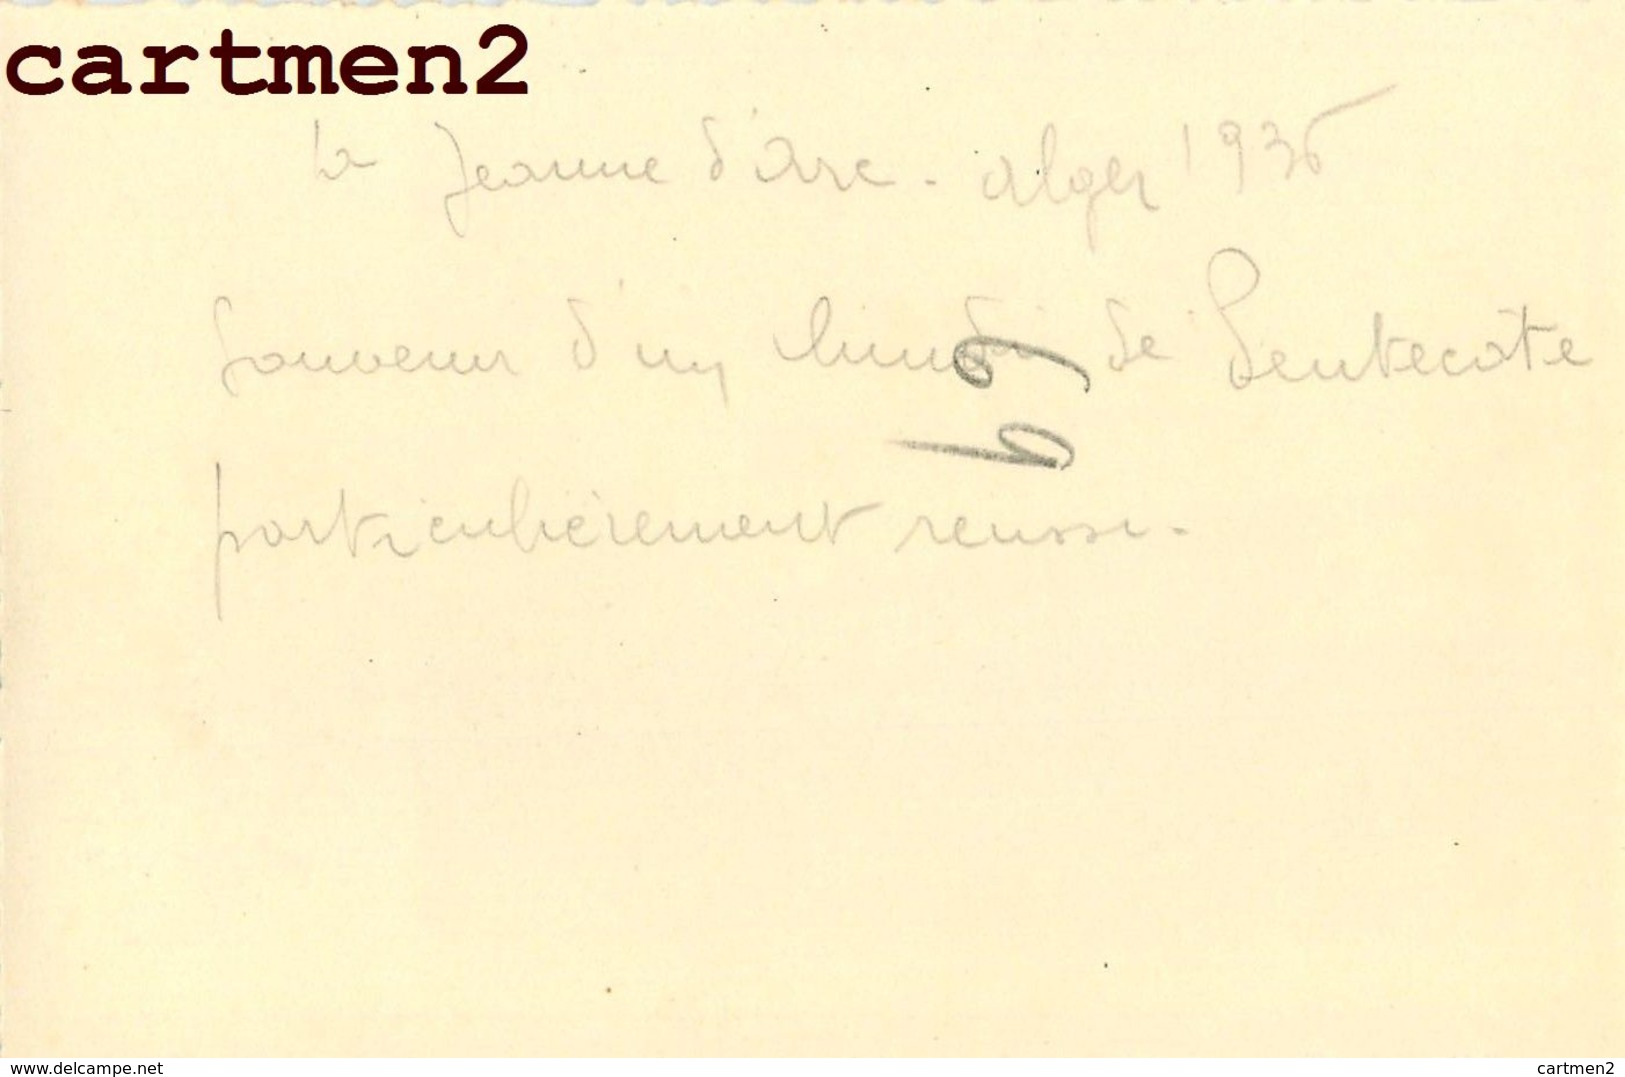 cartmen2
la Jeanne d'Arc - alger 1936
Souvenir d'un lundi de Pentecôte
particulièrement reussi -
www.delcampe.net cartmen2